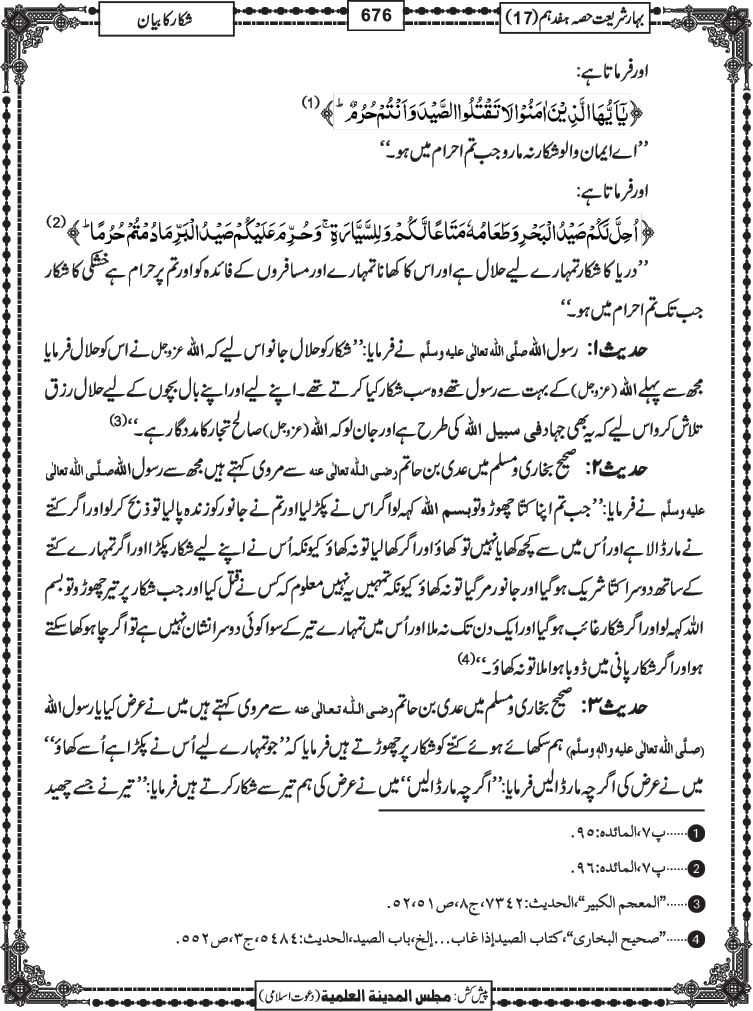 بہار شریعت حصہ ہفدہم (17)
676
شکار کا بیان
اور فرماتا ہے:
﴿ یٰۤاَیُّهَا الَّذِیْنَ اٰمَنُوْا لَا تَقْتُلُوا الصَّیْدَ وَ اَنْتُمْ حُرُمٌ ؕ ﴾ (1)
’’اے ایمان والو شکار نہ مارو جب تم احرام میں ہو۔‘‘
اور فرماتا ہے:
﴿ اُحِلَّ لَكُمْ صَیْدُ الْبَحْرِ وَ طَعَامُهٗ مَتَاعًا لَّكُمْ وَ لِلسَّیَّارَةِ ۚ وَ حُرِّمَ عَلَیْكُمْ صَیْدُ الْبَرِّ مَا دُمْتُمْ حُرُمًا ؕ ﴾ (2)
’’دریا کا شکار تمہارے لیے حلال ہے اور اس کا کھانا تمہارے اور مسافروں کے فائدہ کو اور تم پر حرام ہے خشکی کا شکار
جب تک تم احرام میں ہو۔‘‘
حدیث ۱: رسول اللہ صلَّی اللہ تعالٰی علیہ وسلَّم نے فرمایا: ’’شکار کو حلال جانو اس لیے کہ اللہ عزوجل نے اس کو حلال فرمایا
مجھ سے پہلے اللہ (عزوجل) کے بہت سے رسول تھے وہ سب شکار کیا کرتے تھے۔ اپنے لیے اور اپنے بال بچوں کے لیے حلال رزق
تلاش کرو اس لیے کہ یہ بھی جہاد فی سبیل اللہ کی طرح ہے اور جان لو کہ اللہ (عزوجل) صالح تجار کا مددگار ہے۔‘‘ (3)
حدیث ۲: صحیح بخاری و مسلم میں عدی بن حاتم رضی اللہ تعالٰی عنہ سے مروی کہتے ہیں مجھ سے رسول اللہ صلَّی اللہ تعالٰی
علیہ وسلَّم نے فرمایا: ’’جب تم اپنا کتا چھوڑو تو بسم اللہ کہہ لو اگر اس نے پکڑ لیا اور تم نے جانور کو زندہ پا لیا تو ذبح کر لو اور اگر کتے
نے مار ڈالا ہے اور اُس میں سے کچھ کھایا نہیں تو کھاؤ اور اگر کھا لیا تو نہ کھاؤ کیونکہ اُس نے اپنے لیے شکار پکڑا اور اگر تمہارے کتے
کے ساتھ دوسرا کتا شریک ہو گیا اور جانور مر گیا تو نہ کھاؤ کیونکہ تمہیں یہ نہیں معلوم کہ کس نے قتل کیا اور جب شکار پر تیر چھوڑو تو بسم
اللہ کہہ لو اور اگر شکار غائب ہو گیا اور ایک دن تک نہ ملا اور اُس میں تمہارے تیر کے سوا کوئی دوسرا نشان نہیں ہے تو اگر چاہو کھا سکتے
ہو اور اگر شکار پانی میں ڈوبا ہوا ملا تو نہ کھاؤ۔‘‘ (4)
حدیث ۳: صحیح بخاری و مسلم میں عدی بن حاتم رضی اللہ تعالٰی عنہ سے مروی کہتے ہیں میں نے عرض کیا یا رسول اللہ
(صلَّی اللہ تعالٰی علیہ والہٖ وسلَّم) ہم سکھائے ہوئے کتّے کو شکار پر چھوڑتے ہیں فرمایا کہ ’’جو تمہارے لیے اُس نے پکڑا ہے اُسے کھاؤ‘‘
میں نے عرض کی اگرچہ مار ڈالیں فرمایا: ’’اگرچہ مار ڈالیں‘‘ میں نے عرض کی ہم تیر سے شکار کرتے ہیں فرمایا: ’’تیر نے جسے چھید
1 ......پ ۷، المائدہ: ۹۵.
2 ......پ ۷، المائدہ: ۹۶.
3 ......”المعجم الکبیر“، الحدیث: ۷۳۴۲، ج ۸، ص ۵۱، ۵۲.
4 ......”صحیح البخاری“، کتاب الصید إذا غاب... إلخ، باب الصید، الحدیث: ۵۴۸۴، ج ۳، ص ۵۵۲.
پیش کش: مجلس المدینة العلمیة (دعوت اسلامی)